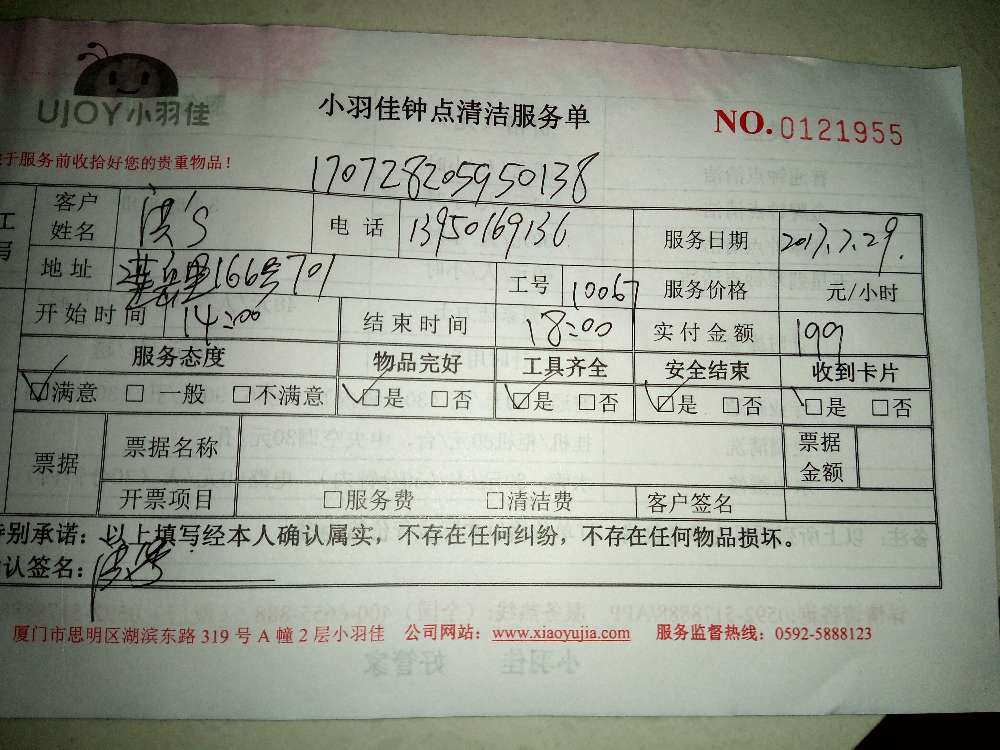 UJOY小羽佳
小羽佳钟点清洁服务单
NO. 0121955
于服务前收拾好您的贵重物品！
170728205950138
工 客户姓名 洪'S 电话 13950169136 服务日期 2017.7.29.
写 地址 166号701 工号 10067 服务价格 元/小时
开始时间 14:00 结束时间 18:00 实付金额 199
服务态度 物品完好 工具齐全 安全结束 收到卡片
☑满意 □一般 □不满意 ☑是 □否 ☑是 □否 ☑是 □否 ☑是 □否
票据 票据名称 票据金额
开票项目 □服务费 □清洁费 客户签名
特别承诺：以上填写经本人确认属实，不存在任何纠纷，不存在任何物品损坏。
认签名：
厦门市思明区湖滨东路 319 号 A 幢 2 层小羽佳 公司网站：www.xiaoyujia.com 服务监督热线：0592-5888123